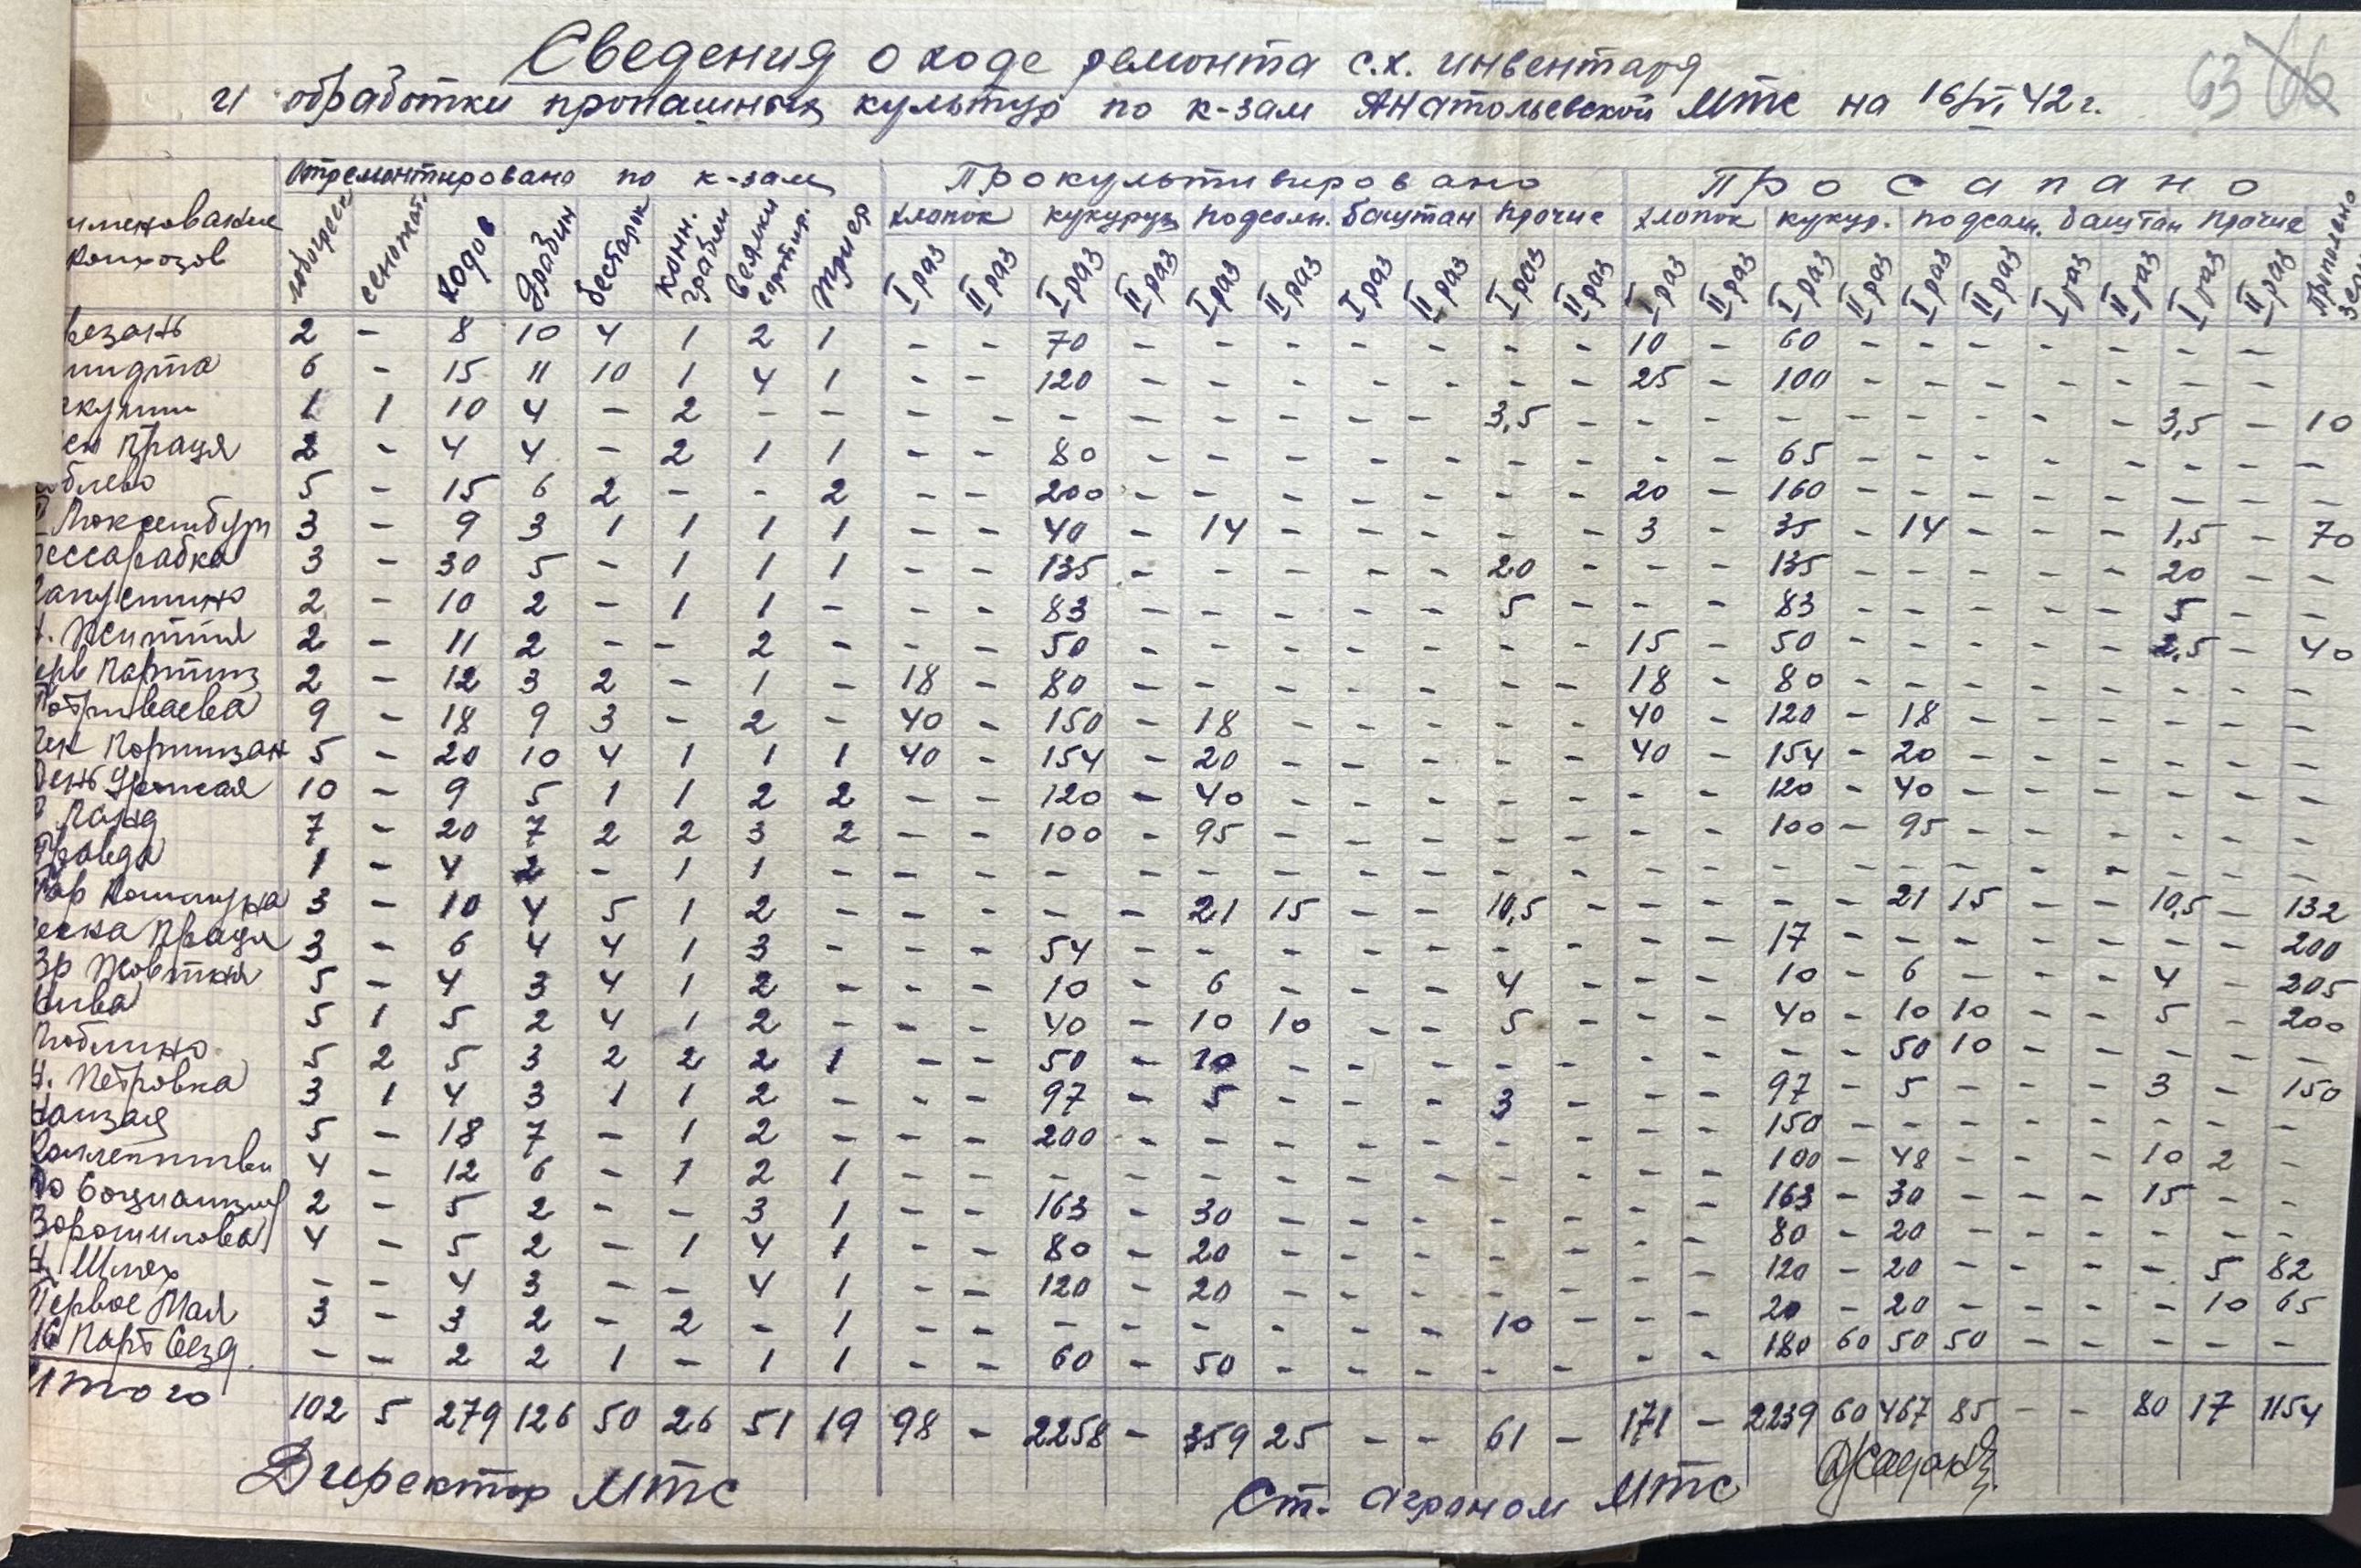 63 66
Сведения о ходе ремонта с.х. инвентаря
и обработки пропашных культур по к-зам Анатольевской МТС на 16/VI 42 г.
именование колхозов Отремонтировано по к-зам Прокультивировано Просапано
хлопок кукуруз подсолн. баштан прочие хлопок кукур. подсолн. баштан прочие
лобогреек сенокос. ходов драбин бестарок конн. грабли веялки сортир. триер I раз II раз I раз II раз I раз II раз I раз II раз I раз II раз I раз II раз I раз II раз I раз II раз I раз II раз I раз II раз
везань 2 - 8 10 4 1 2 1 - - 70 - - - - - - - 10 - 60 - - - - - - -
мидта 6 - 15 11 10 1 4 1 - - 120 - - - - - - - 25 - 100 - - - - - - -
1 1 10 4 - 2 - - - - - - - - - - 3,5 - - - - - - - - - 3,5 - 10
ен Праця 2 - 4 4 - 2 1 1 - - 80 - - - - - - - - - 65 - - - - - - - -
облево 5 - 15 6 2 - - 2 - - 200 - - - - - - - 20 - 160 - - - - - - - -
Люксембург 3 - 9 3 1 1 1 1 - - 40 - 14 - - - - - 3 - 35 - 14 - - - 1,5 - 70
Бессарабка 3 - 30 5 - 1 1 1 - - 135 - - - - - 20 - - - 135 - - - - - 20 - -
Капустино 2 - 10 2 - 1 1 - - - 83 - - - - - 5 - - - 83 - - - - - 5 - -
Н. Життя 2 - 11 2 - - 2 - - - 50 - - - - - - - 15 - 50 - - - - - 2,5 - 40
ерв Партиз 2 - 12 3 2 - 1 - 18 - 80 - - - - - - - 18 - 80 - - - - - - - -
Потриваева 9 - 18 9 3 - 2 - 40 - 150 - 18 - - - - - 40 - 120 - 18 - - - - - -
Чен Портизан 5 - 20 10 4 1 1 1 40 - 154 - 20 - - - - - 40 - 154 - 20 - - - - - -
День Урожая 10 - 9 5 1 1 2 2 - - 120 - 40 - - - - - - - 120 - 40 - - - - - -
Ланд 7 - 20 7 2 2 3 2 - - 100 - 95 - - - - - - - 100 - 95 - - - - - -
Правда 1 - 4 2 - 1 1 - - - - - - - - - - - - - - - - - - - - - -
Пар Коммуна 3 - 10 4 5 1 2 - - - - - 21 15 - - 10,5 - - - - - 21 15 - - 10,5 - 132
еска Праця 3 - 6 4 4 1 3 - - - 54 - - - - - - - - - 17 - - - - - - - 200
Зр Жовтня 5 - 4 3 4 1 2 - - - 10 - 6 - - - 4 - - - 10 - 6 - - - 4 - 205
Нива 5 1 5 2 4 1 2 - - - 40 - 10 10 - - 5 - - - 40 - 10 10 - - 5 - 200
Люблино 5 2 5 3 2 2 2 1 - - 50 - 10 - - - - - - - - - 50 10 - - - - -
Н. Петровка 3 1 4 3 1 1 2 - - - 97 - 5 - - - 3 - - - 97 - 5 - - - 3 - 150
5 - 18 7 - 1 2 - - - 200 - - - - - - - - - 150 - - - - - - - -
Коллективи 4 - 12 6 - 1 2 1 - - - - - - - - - - - - 100 - 48 - - - 10 2 -
До Социализм 2 - 5 2 - - 3 1 - - 163 - 30 - - - - - - - 163 - 30 - - - 15 - -
Ворошилова 4 - 5 2 - 1 4 1 - - 80 - 20 - - - - - - - 80 - 20 - - - - - -
Н. Шлях - - 4 3 - - 4 1 - - 120 - 20 - - - - - - - 120 - 20 - - - - 5 82
Первое Мая 3 - 3 2 - 2 - 1 - - - - - - - - 10 - - - 20 - 20 - - - - 10 65
16 Парт Сезд - - 2 2 1 - 1 1 - - 60 - 50 - - - - - - - 180 60 50 50 - - - - -
Итого 102 5 279 126 50 26 51 19 98 - 2258 - 359 25 - - 61 - 171 - 2239 60 467 85 - - 80 17 1154
Директор МТС Ст. агроном МТС